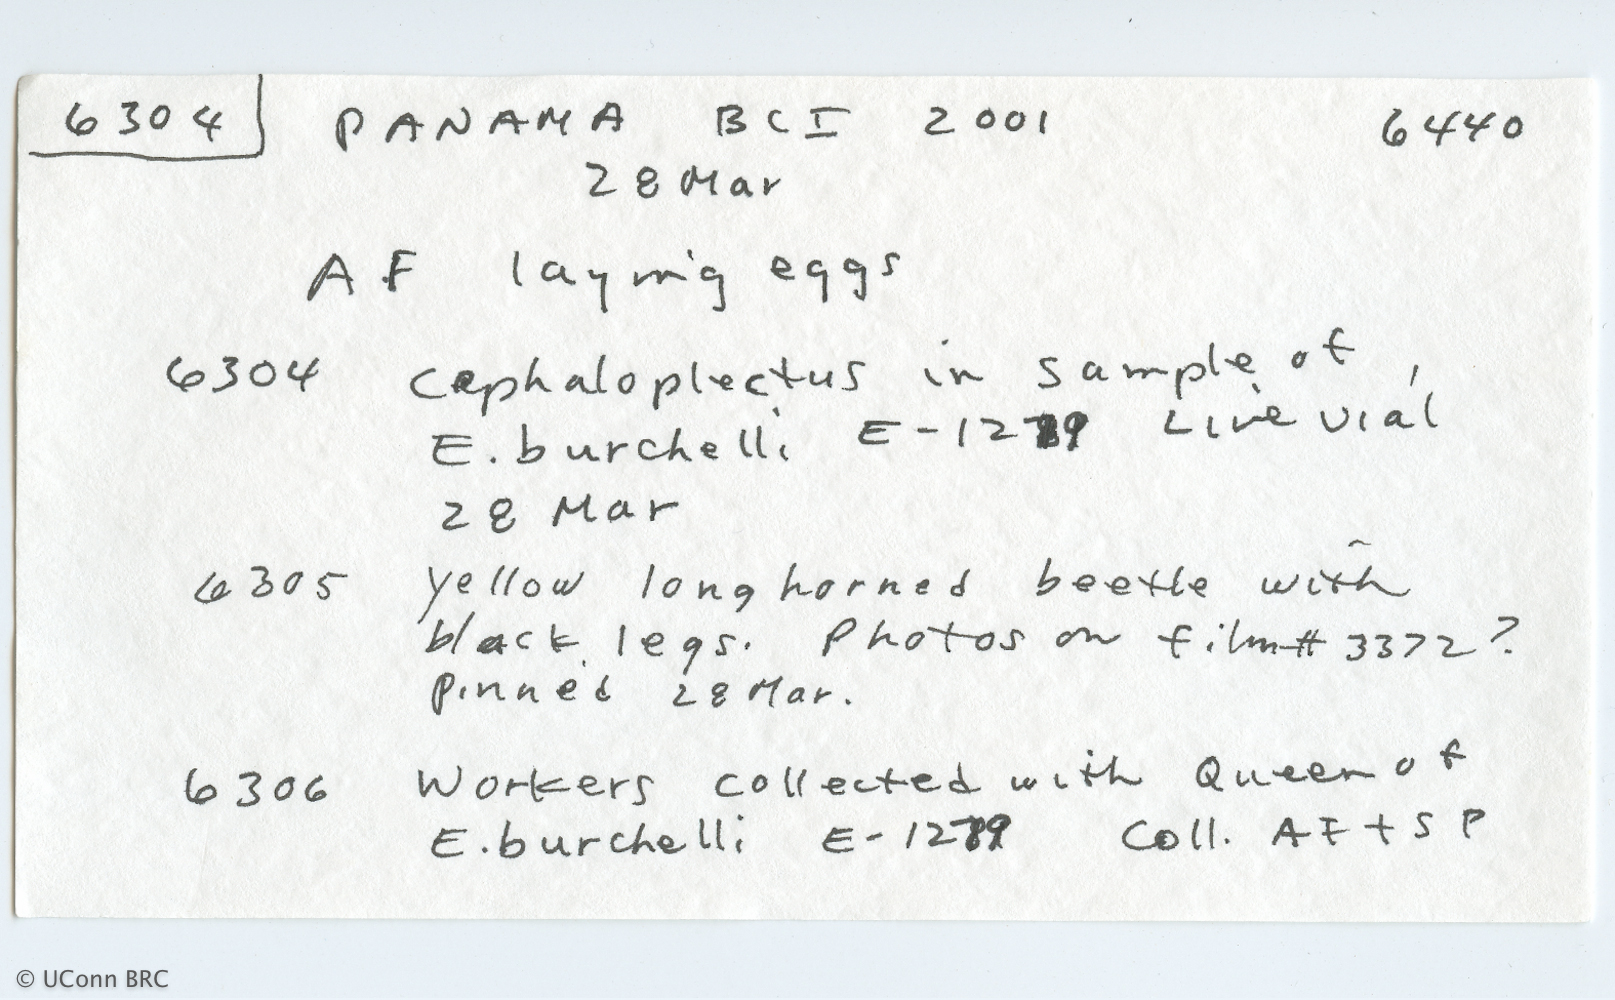 6304 PANAMA BCI 2001 6440
28 Mar
AF laying eggs
6304 Cephaloplectus in sample of
E. burchelli Live vial
28 Mar
6305 yellow longhorned beetle with
black legs. Photos on film# 3372?
pinned 28 Mar.
6306 Workers collected with Queen of
E. burchelli Coll. AF + SP
© UConn BRC